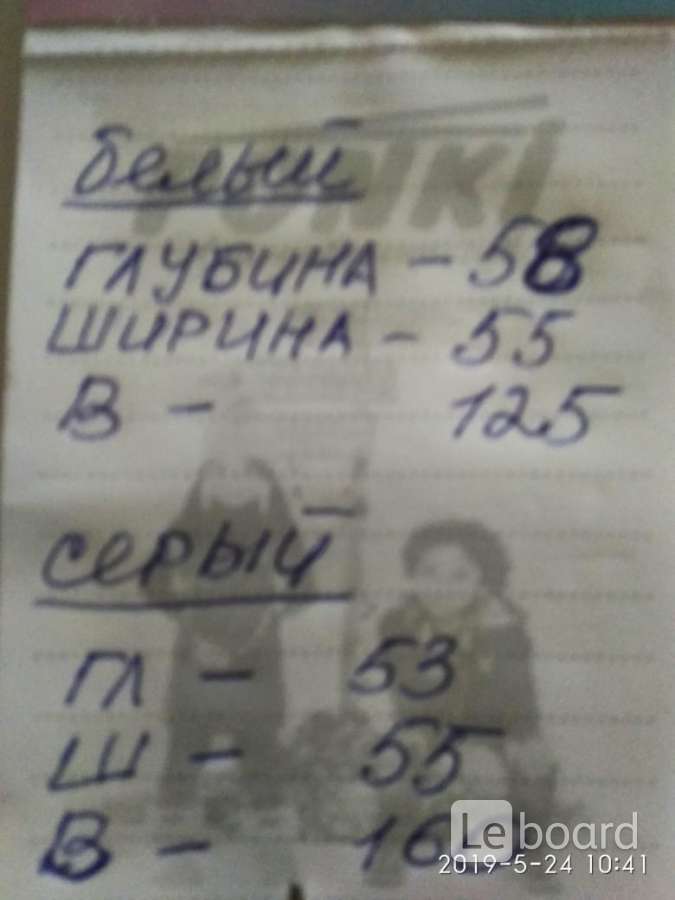 FUNKI
белый
ГЛУБИНА - 58
ШИРИНА - 55
В - 125
серый
ГЛ - 53
Ш - 55
В -
Leboard
2019-5-24 10:41